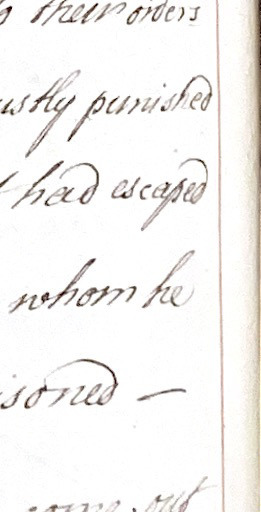 their orders
ustly punished
had escaped
whom he
isoned —
come out